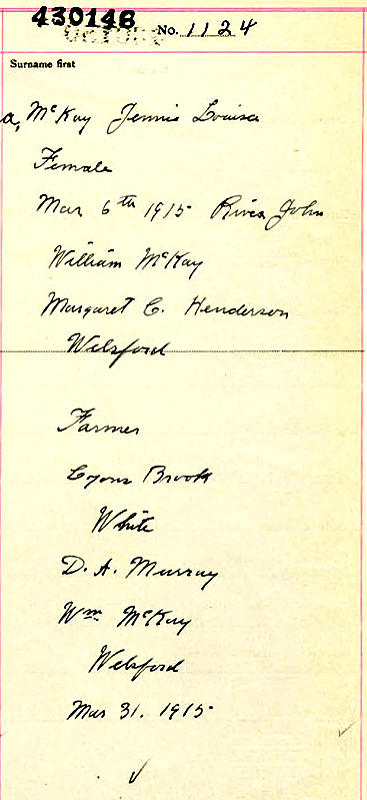 430146
No. 1124
Surname first
a, McKay Jennie Louisa
Female
Mar 6th 1915 River John
William McKay
Margaret C. Henderson
Welsford
Farmer
Lyons Brook
White
D. A. Murray
Wm McKay
Welsford
Mar 31. 1915